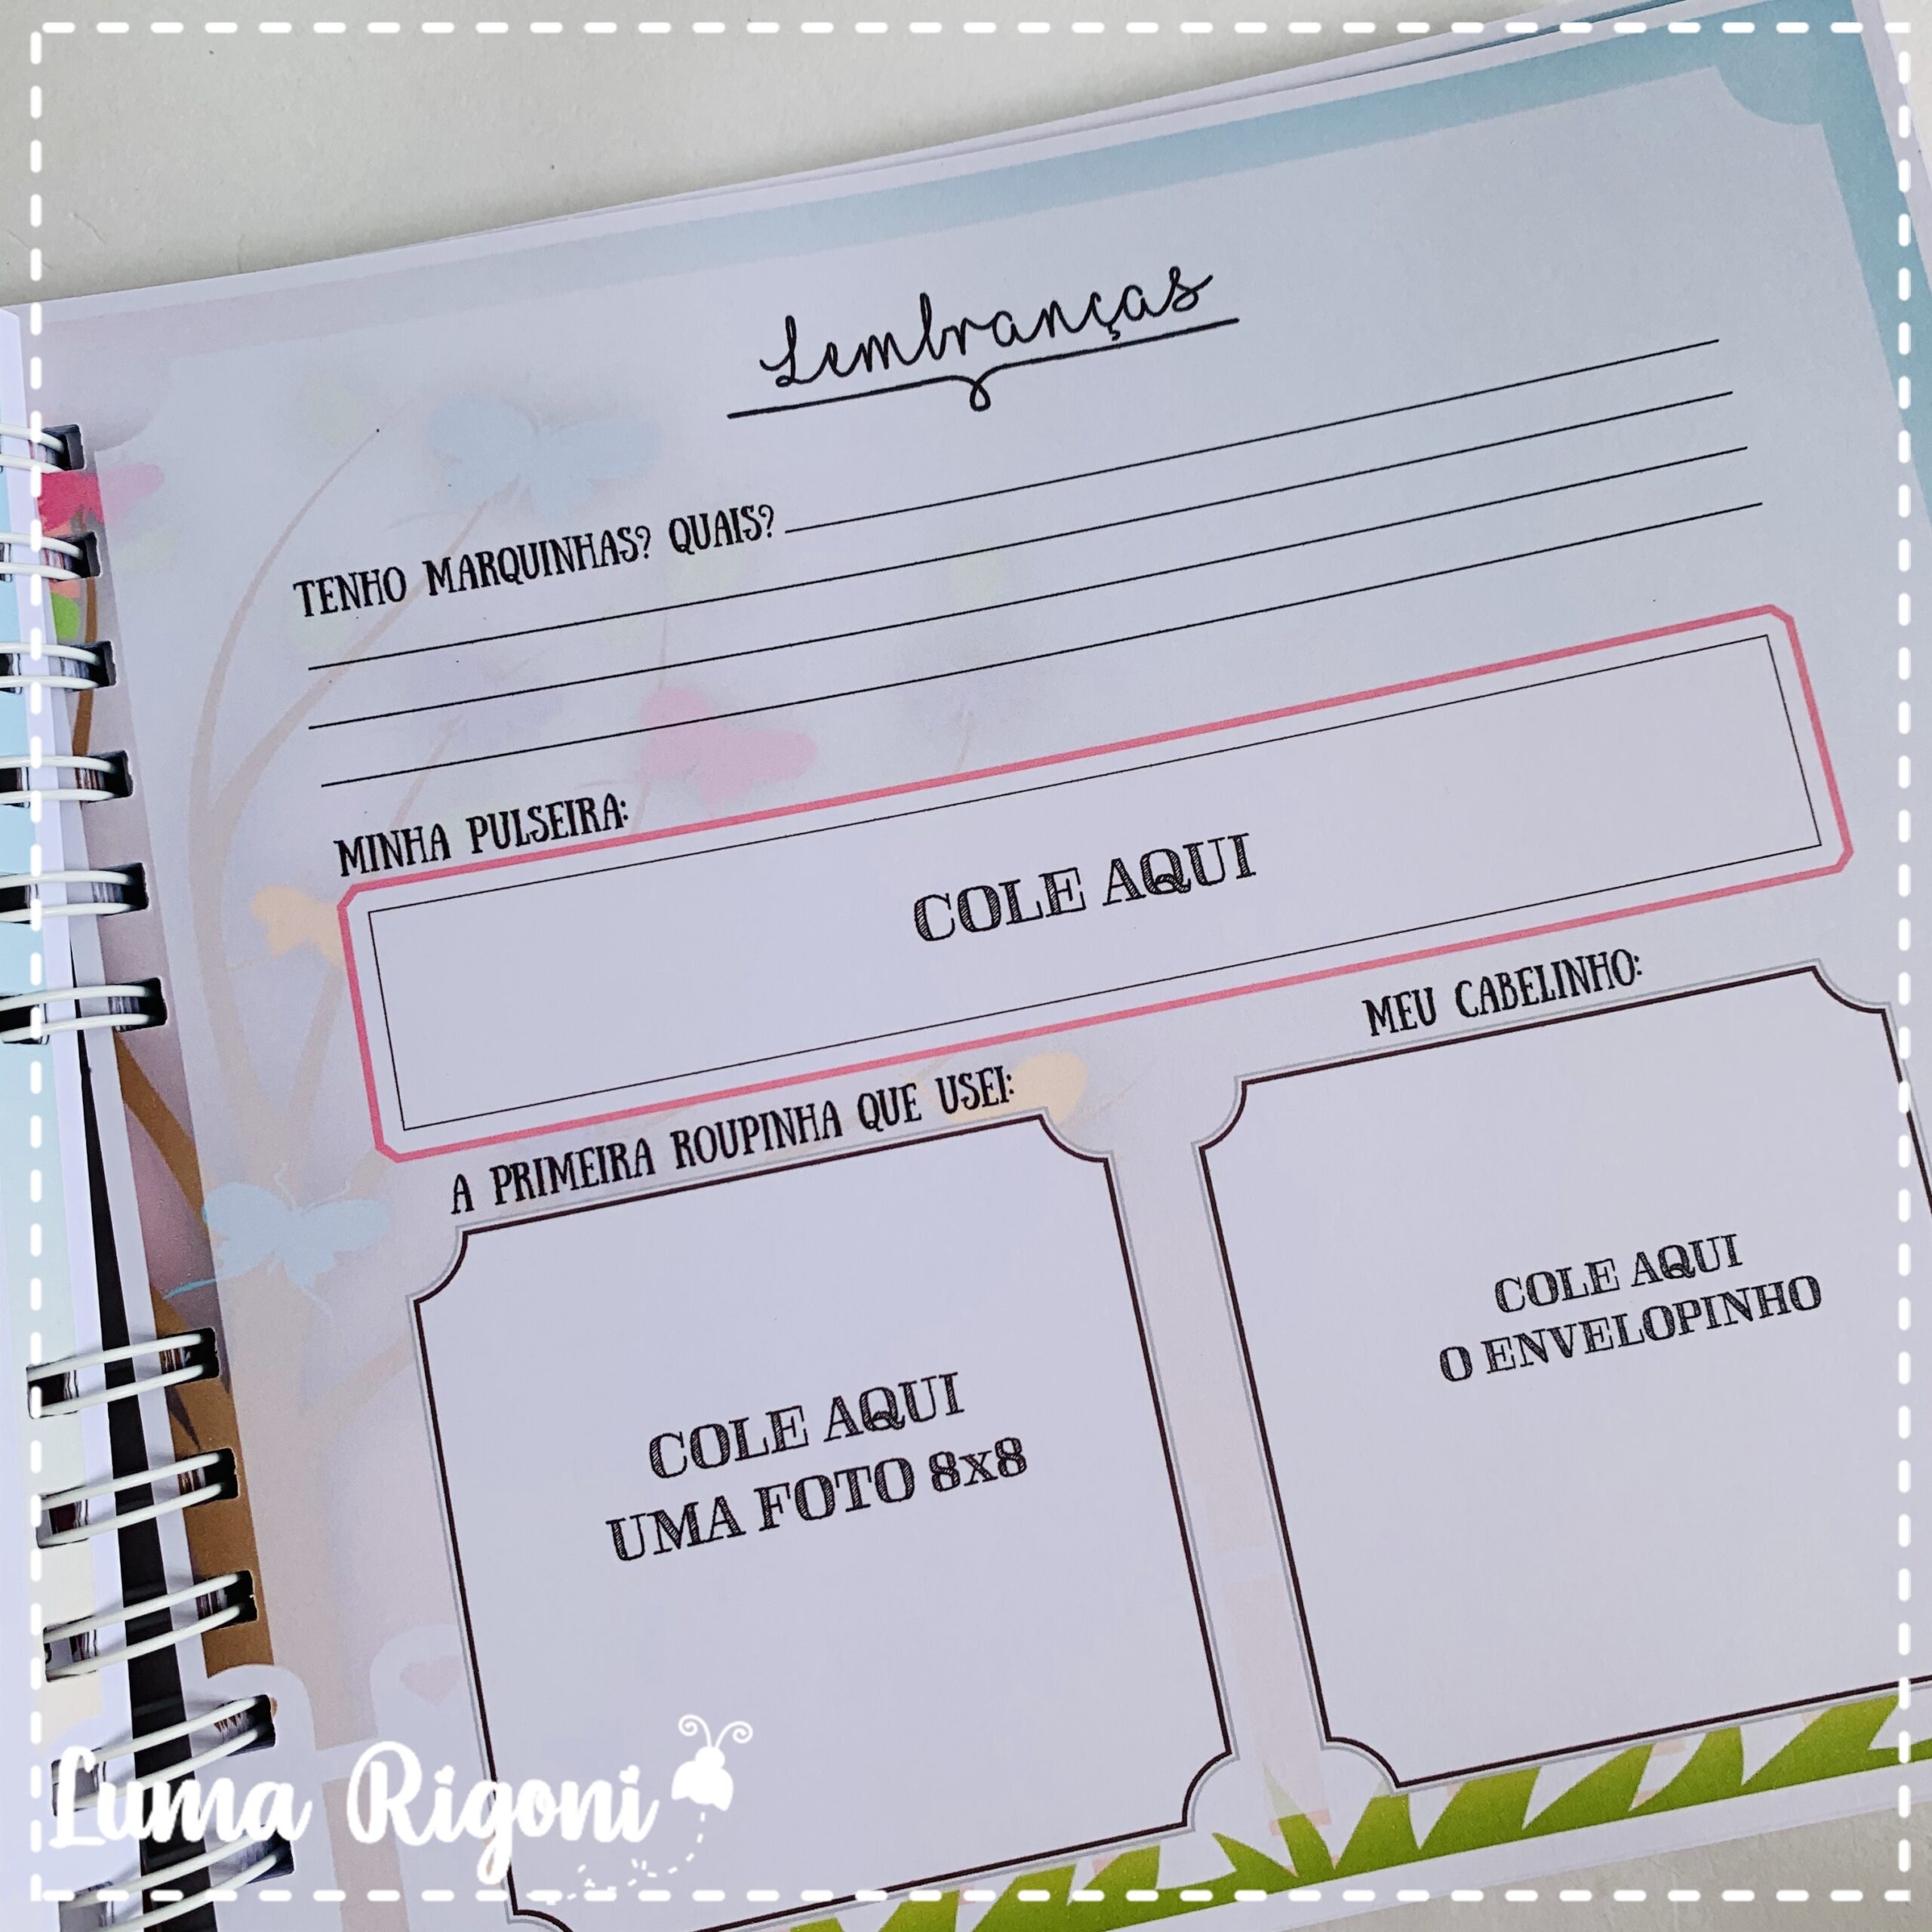 Lembranças
TENHO MARQUINHAS? QUAIS?
MINHA PULSEIRA:
COLE AQUI
A PRIMEIRA ROUPINHA QUE USEI:
COLE AQUI
UMA FOTO 8x8
MEU CABELINHO:
COLE AQUI
O ENVELOPINHO
Luma Rigoni